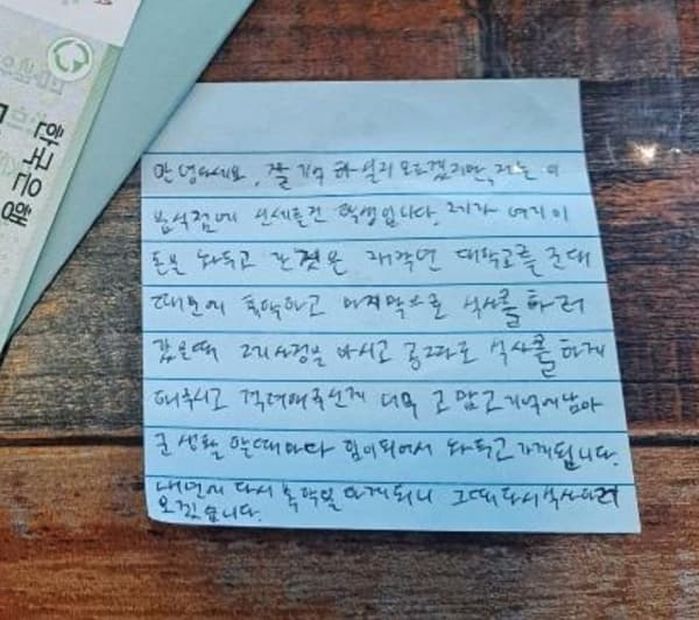 한국은행
안녕하세요, 잘 기억 하실지 모르겠지만, 저는 이
음식점에 신세를진 학생입니다. 제가 여기 이
돈을 놔두고 간것은 재작년 대학교를 군대
때문에 휴학하고 마지막으로 식사를 하러
갔을때 제 사정을 아시고 공짜로 식사를 하게
해주시고 격려해주신게 너무 고맙고 기억에남아
군 생활 할때마다 힘이되어서 놔두고 가게됩니다.
내년에 다시 복학을 하게되니 그때 다시 식사하러
오겠습니다.